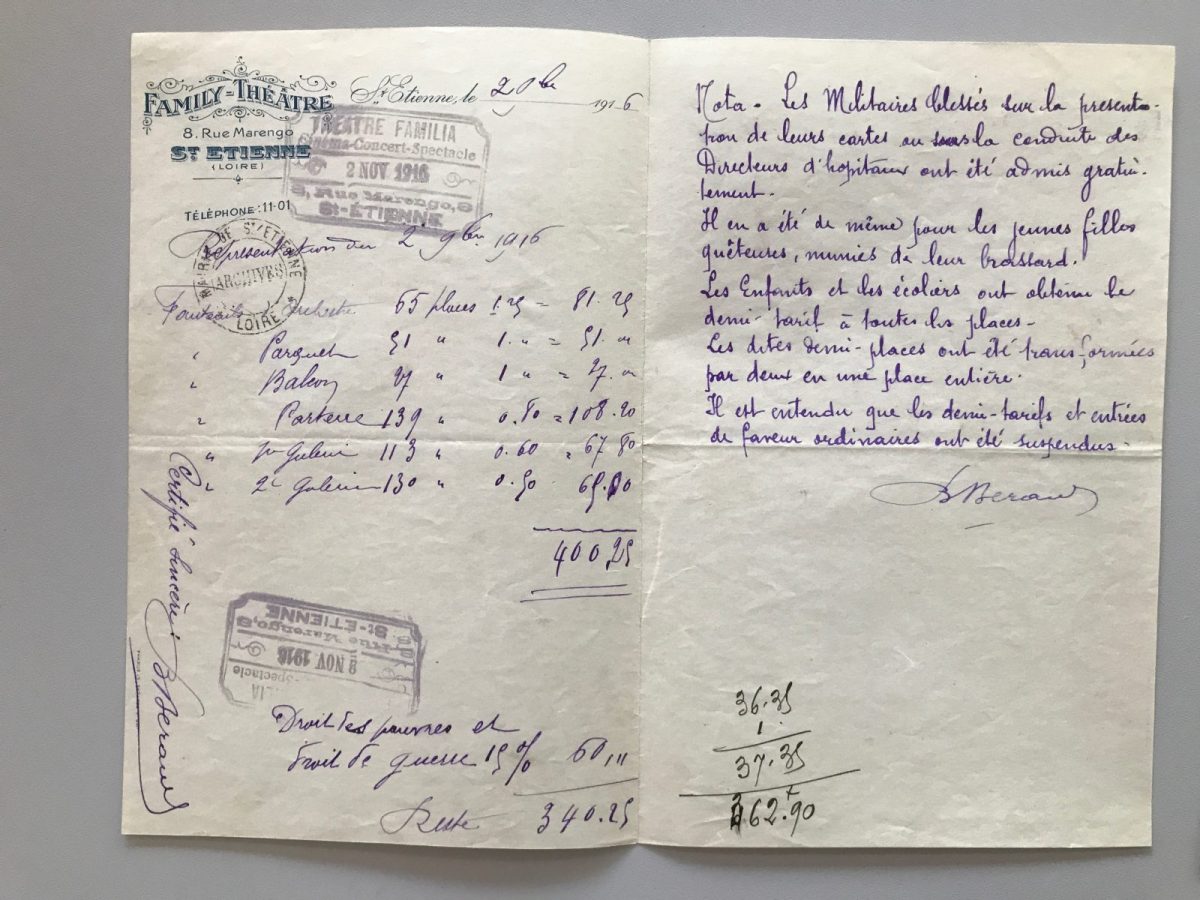 FAMILY-THÉÂTRE
8. Rue Marengo
ST ETIENNE
(LOIRE)
TÉLÉPHONE: 11-01
St Etienne, le 2 9bre 1916
THÉATRE FAMILIA
Cinéma-Concert-Spectacle
2 NOV 1916
8, Rue Marengo, 8
St-ÉTIENNE
MAIRIE DE St ETIENNE
ARCHIVES
LOIRE
Représentation du 2 9bre 1916
Fauteuils Orchestre 65 places 1.25 = 81.25
" Parquet 51 " 1." = 51."
" Balcon 27 " 1 " = 27."
" Parterre 139 " 0.80 = 108.20
" 1re Galerie 113 " 0.60 = 67.80
" 2e Galerie 130 " 0.50 65.00
400,25
Certifié sincère
B Beraud
St-ÉTIENNE
Rue Marengo, 8
2 NOV 1916
Spectacle
Droit des pauvres et
droit de guerre 15 % 60,"
Reste 340.25
Nota - Les Militaires blessés sur la présenta-
tion de leurs cartes ou sous la conduite des
Directeurs d'hopitaux ont été admis gratui-
tement.
Il en a été de même pour les jeunes filles
quêteuses, munies de leur brassard.
Les Enfants et les écoliers ont obtenu le
demi-tarif à toutes les places-
Les dites demi-places ont été transformées
par deux en une place entière.
Il est entendu que les demi-tarifs et entrées
de faveur ordinaires ont été suspendus-
B Beraud
36.35
1.
37.35
362.90